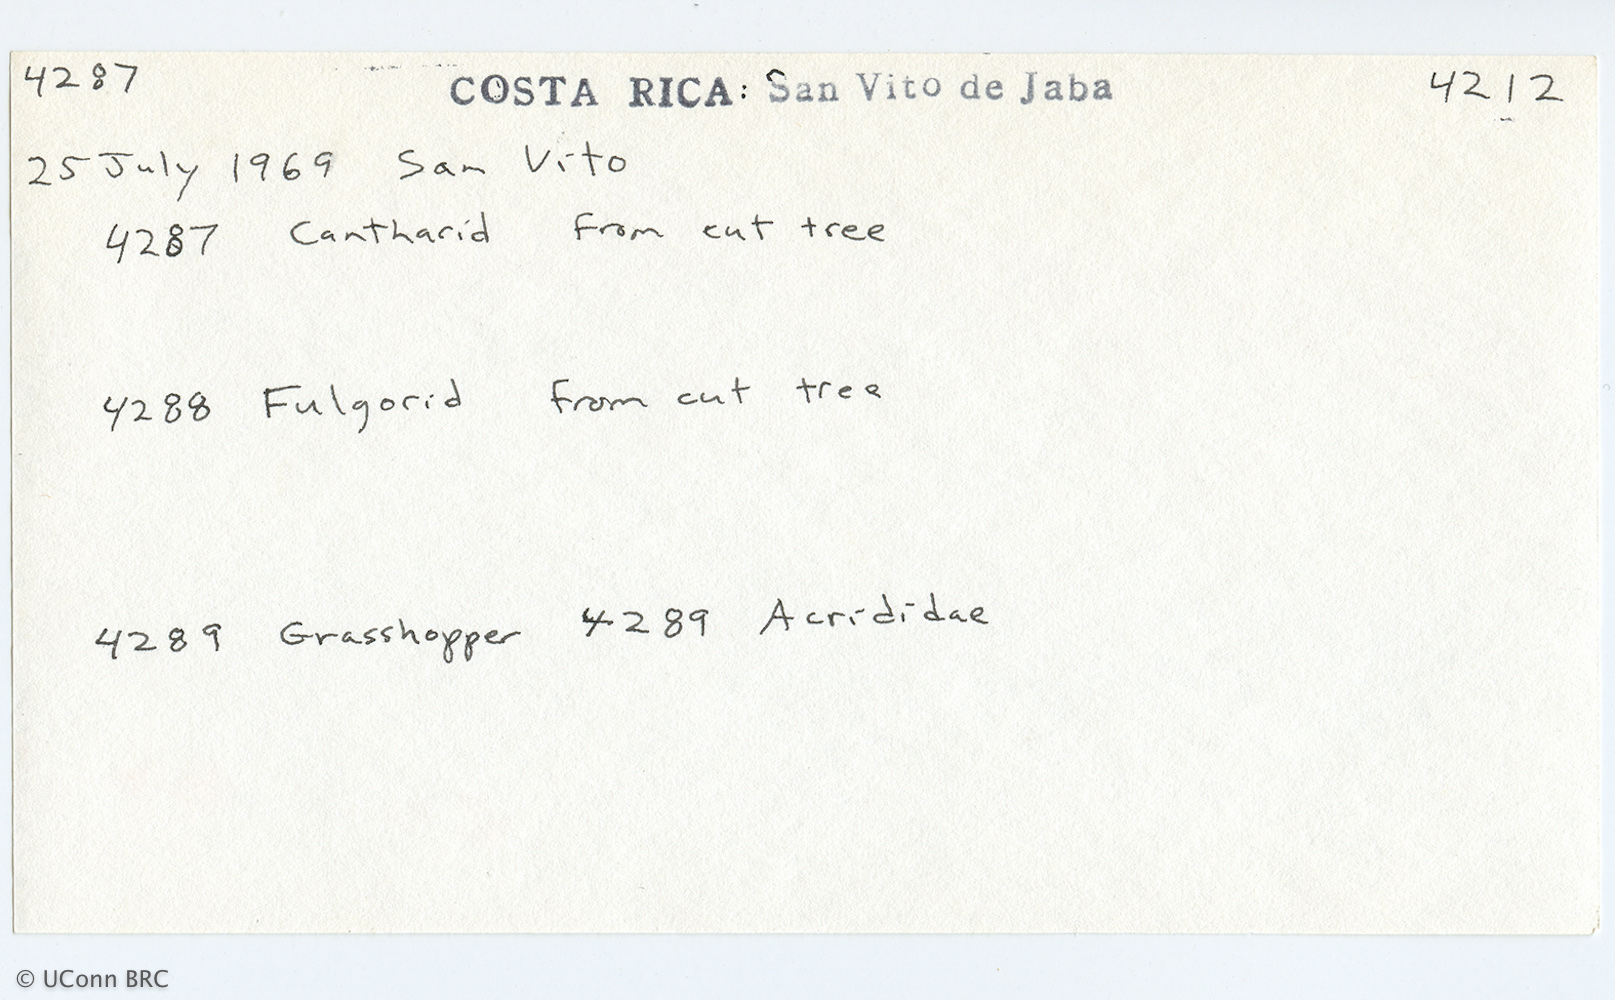 4287 COSTA RICA: San Vito de Jaba 4212
25 July 1969 San Vito
4287 Cantharid from cut tree
4288 Fulgorid from cut tree
4289 Grasshopper 4289 Acrididae
© UConn BRC